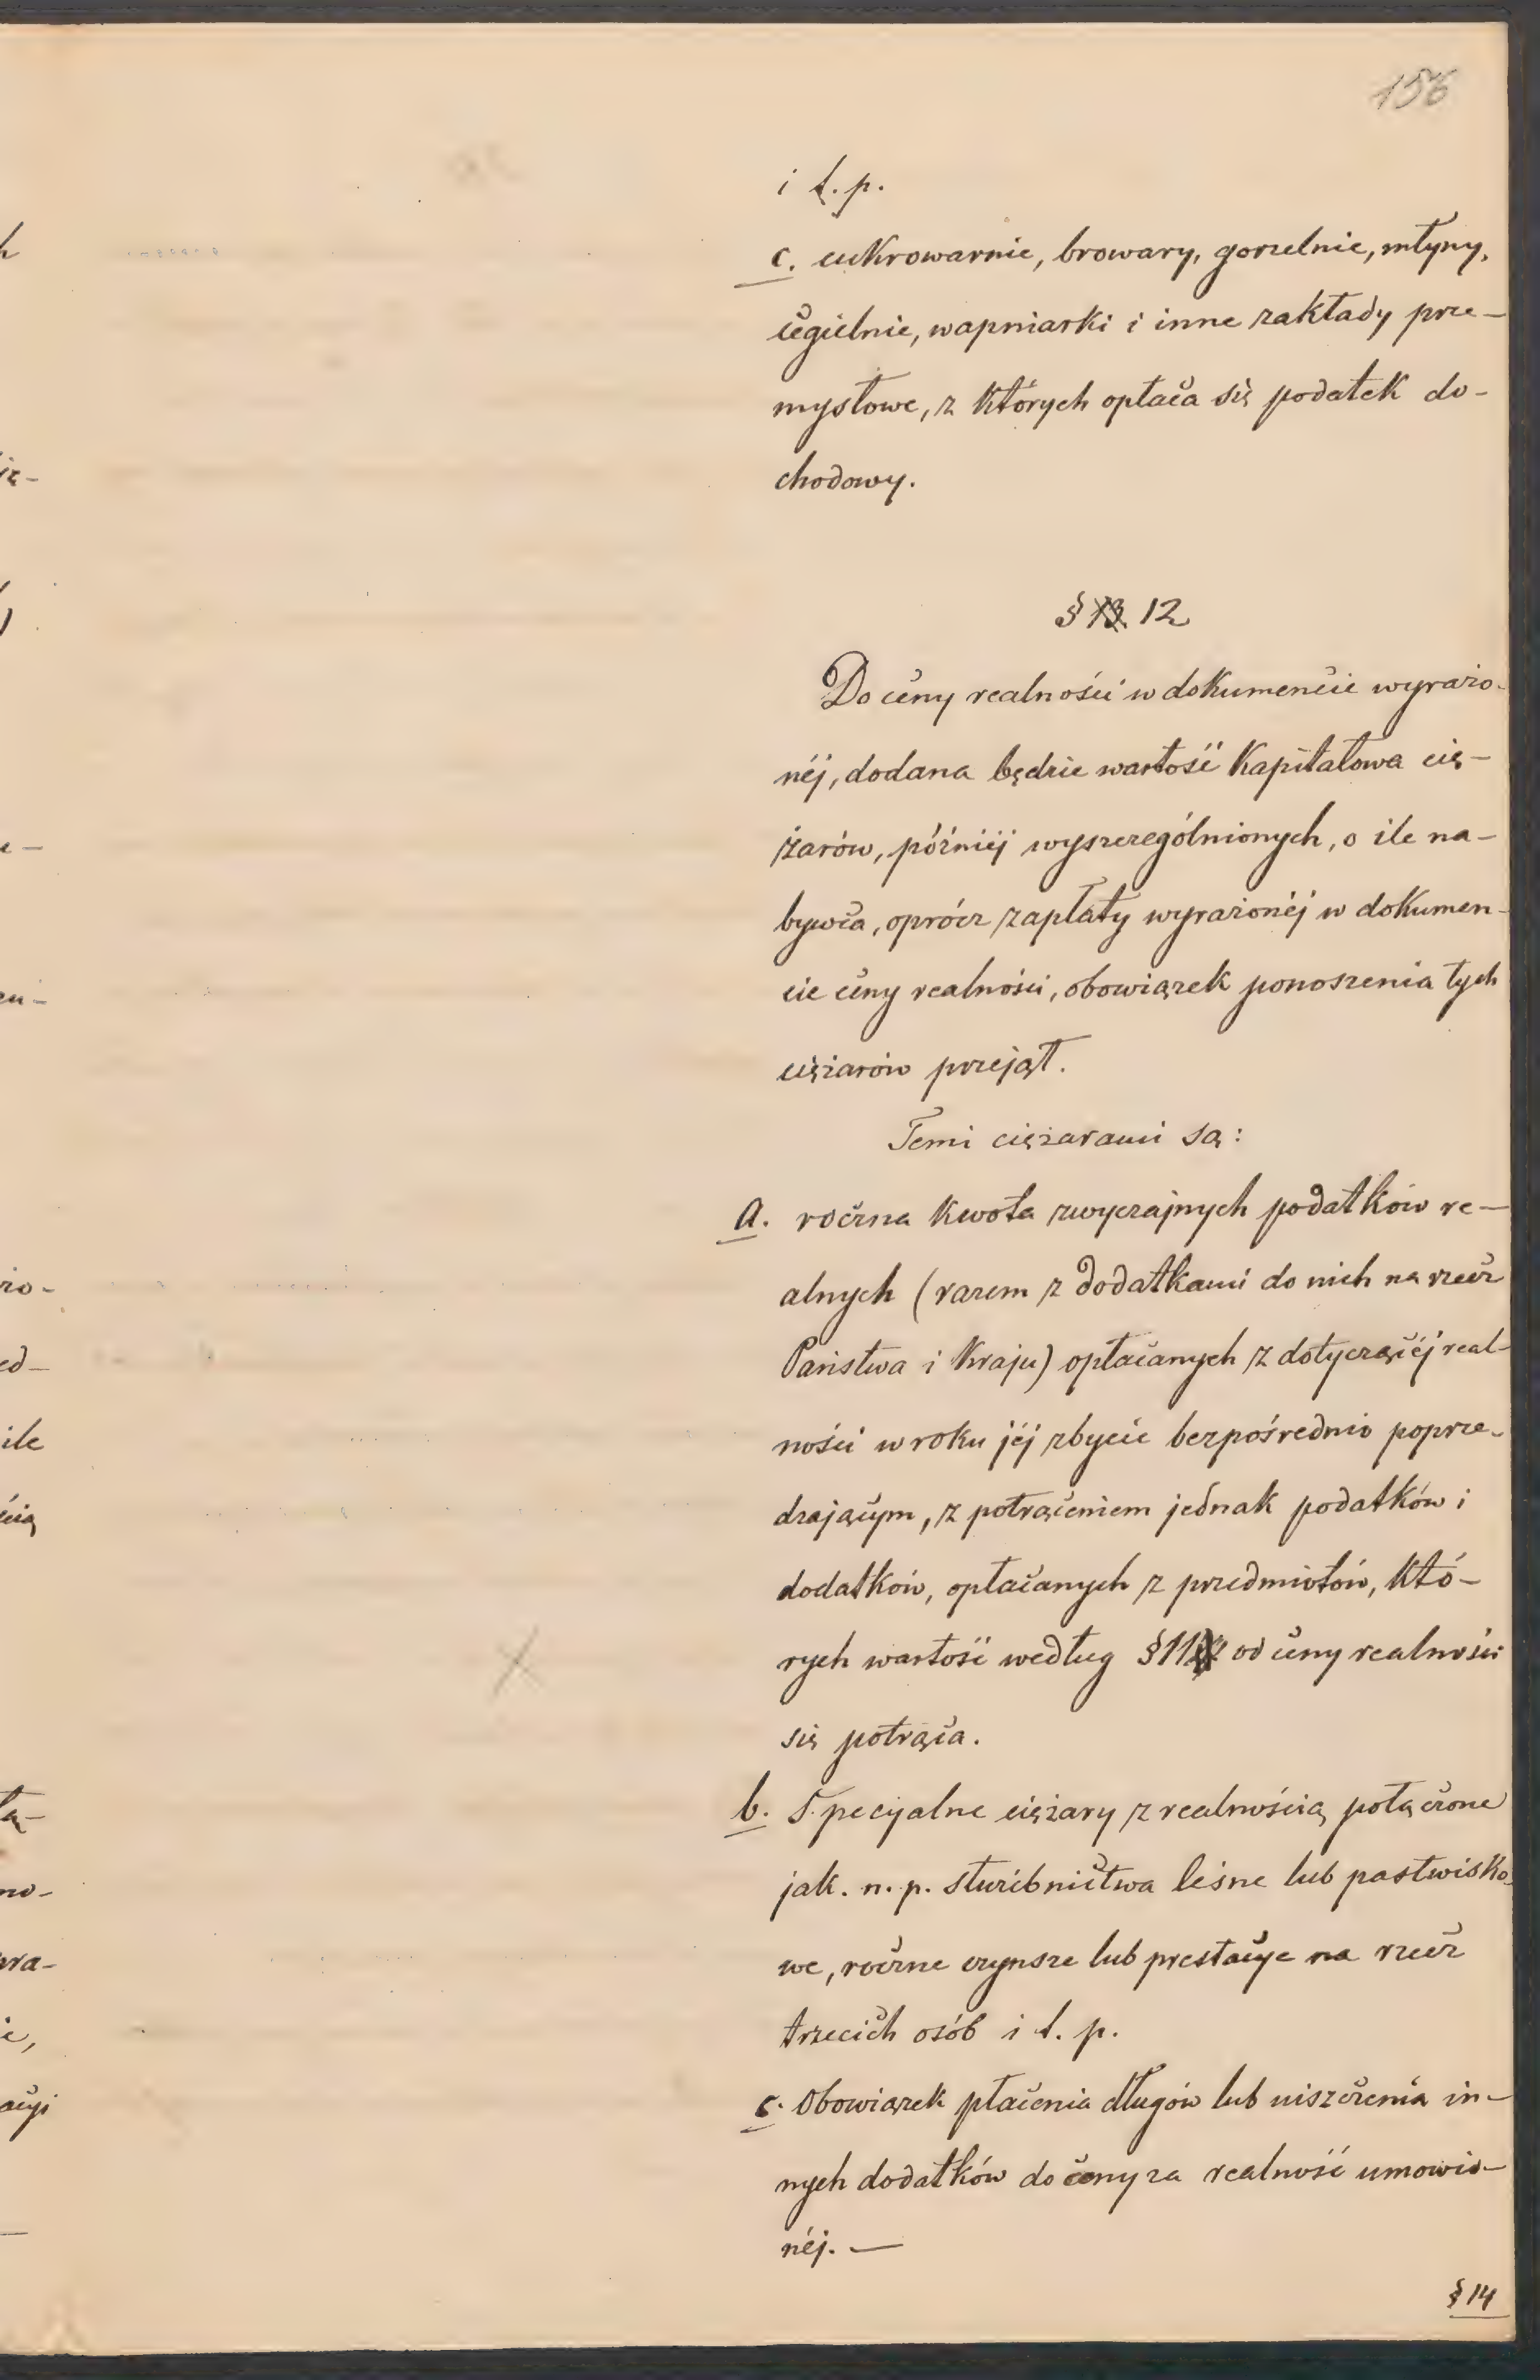 156
i t. p.
c. cukrowarnie, browary, gorzelnie, młyny,
cegielnie, wapniarki i inne zakłady prze-
mysłowe, z których opłaca się podatek do-
chodowy.
§ 13. 12
Do ceny realności w dokumencie wyrażo-
néj, dodana będzie wartość kapitałowa cię-
żarów, późniéj wyszczególnionych, o ile na-
bywca, oprócz zapłaty wyrażonéj w dokumen-
cie ceny realności, obowiązek ponoszenia tych
ciężarów przejął.
Temi ciężarami są:
a. roczna kwota zwyczajnych podatków re-
alnych (razem z dodatkami do nich na rzecz
Państwa i Kraju) opłacanych z dotyczącéj real-
ności w roku jéj zbycie bezpośrednio poprze-
dzającym, z potrąceniem jednak podatków i
dodatków, opłacanych z przedmiotów, któ-
rych wartość według § 11 od ceny realności
się potrąca.
b. Specyalne ciężary z realnością połączone
jak. n. p. służebnictwa leśne lub pastwisko-
we, roczne czynsze lub prestacye na rzecz
trzecich osób i t. p.
c. Obowiązek płacenia długów lub uiszczenia in-
nych dodatków do ceny za realność umowio-
néj. —
§ 14